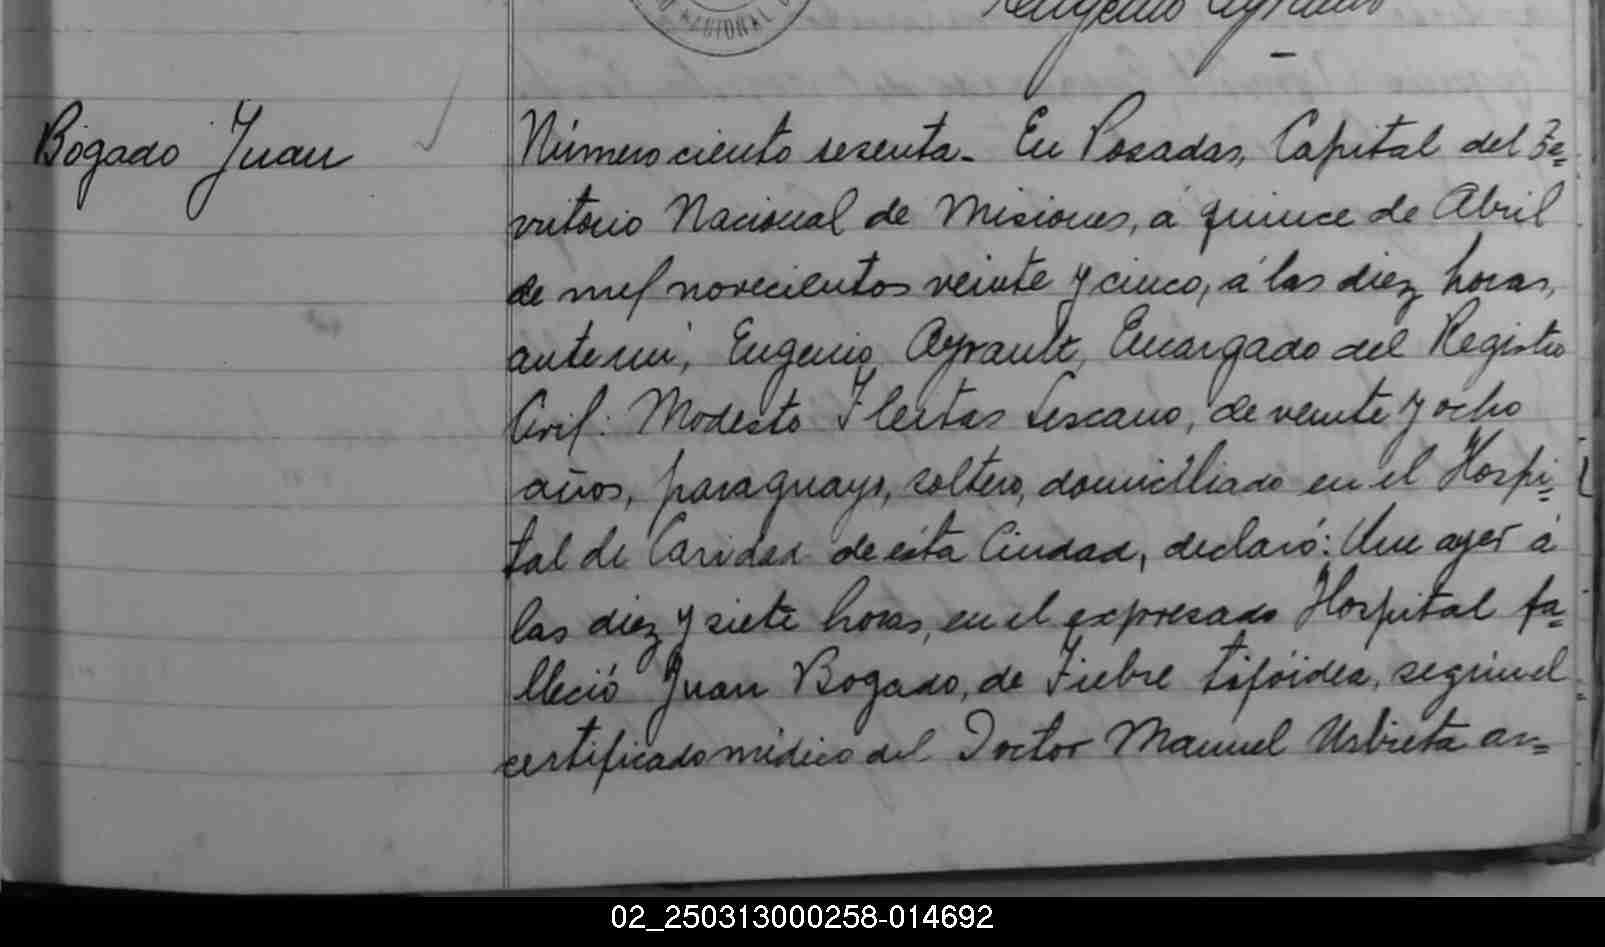 NACIONAL
Eugenio Ayrault
Bogado Juan
Número ciento sesenta. En Posadas, Capital del Te=
rritorio Nacional de Misiones, á quince de Abril
de mil novecientos veinte y cinco, á las diez horas,
ante mi, Eugenio Ayrault, Encargado del Registro
Civil: Modesto Fleitas Lescano, de veinte y ocho
años, paraguayo, soltero, domicilliado en el Hospi=
tal de Caridad de ésta Ciudad, declaró: Que ayer á
las diez y siete horas, en el expresado Hospital fa=
lleció Juan Bogado, de Fiebre tifóidea, según el
certificado médico del Doctor Manuel Urbieta ar=
02_250313000258-014692